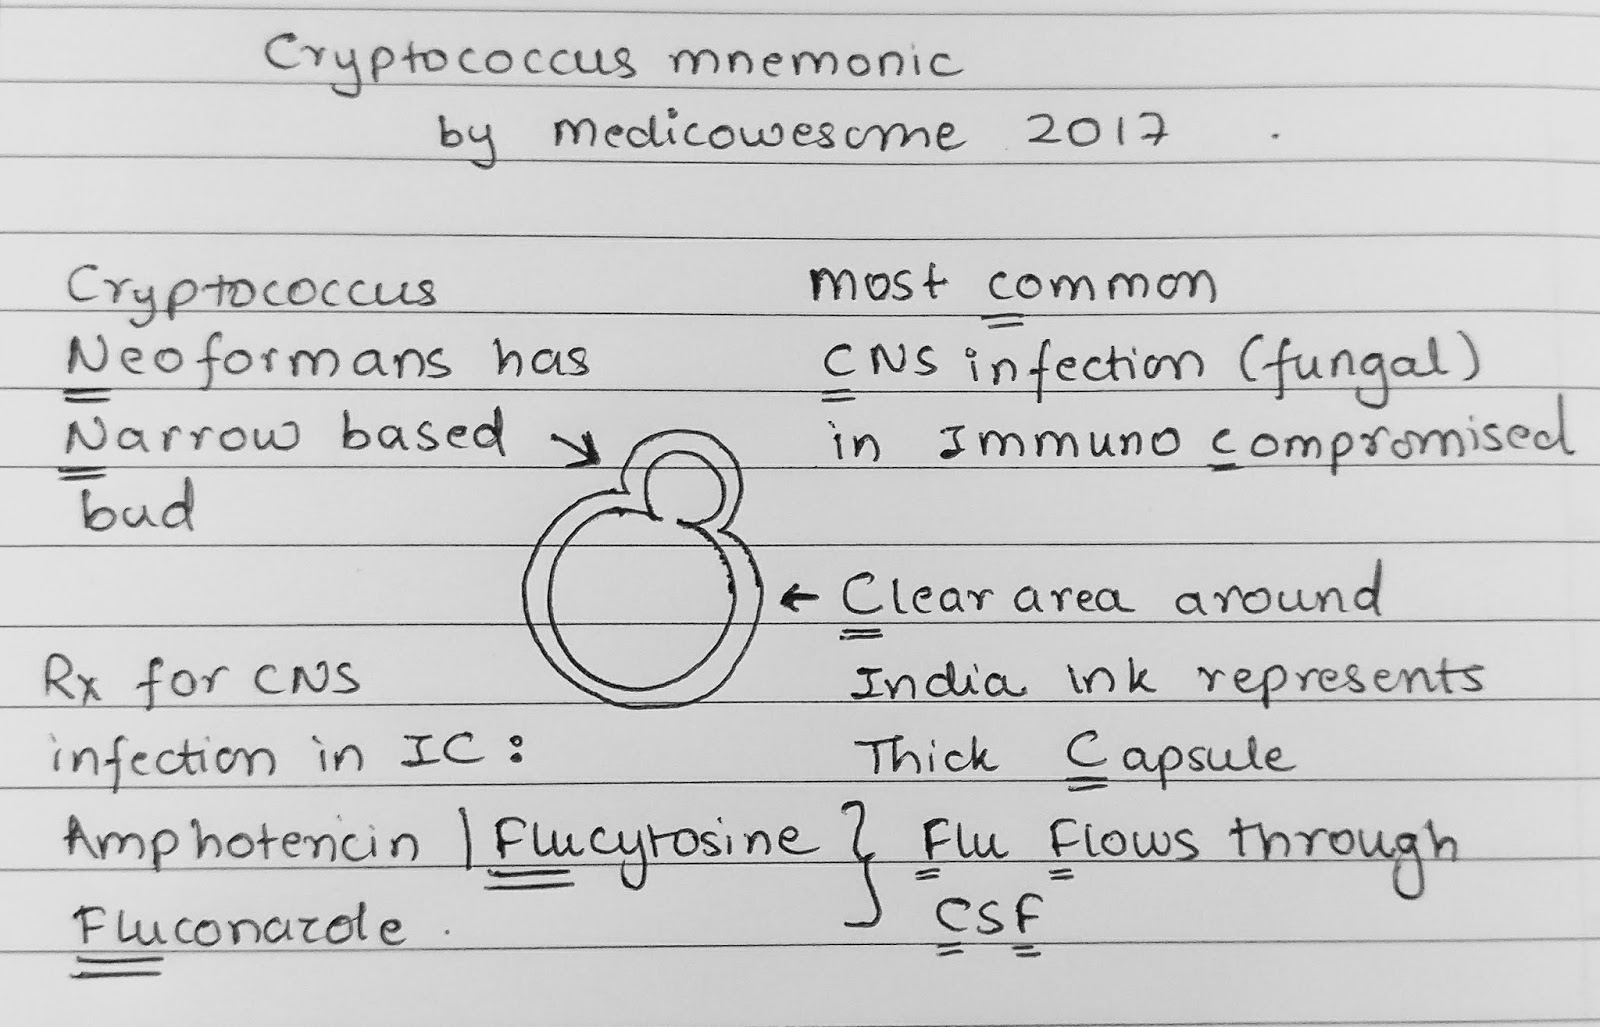 Cryptococcus mnemonic
by medicowesome 2017 .
Cryptococcus
Neoformans has
Narrow based
bud
most common
CNS infection (fungal)
in Immuno compromised
← Clear area around
India ink represents
Thick Capsule
Rx for CNS
infection in IC :
Amphotericin / Flucytosine } Flu Flows through
Fluconazole . CSF